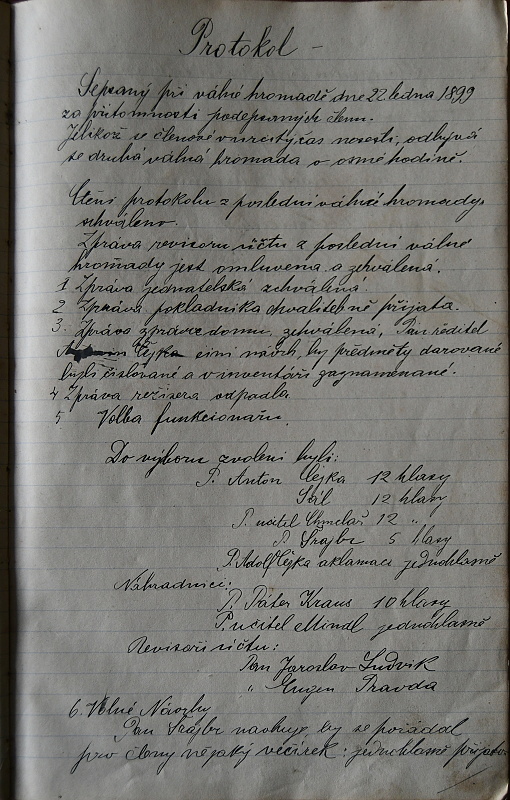 Protokol -
Sepsaný při válné hromadě dne 22. ledna 1899
za přítomnosti podepsaných členů.
Jelikož se členové v určitý čas nesešli, odbývá
se druhá válná hromada o osmé hodině.
Čtění protokolu z poslední válné hromady
schváleno.
Zpráva revisoru účtu z poslední válné
hromady jest omluvena a schválená.
1 Zpráva jednatelská schválena.
2 Zpráva pokladníka chvalitebně přijata.
3. Zpráva správce domu, schválená, Pan ředitel
Čejka činí návrh, by předměty darované
byli číslované a v inventáři zaznamenané.
4 Zpráva režisera odpadla
5 Volba funkcionařu.
Do výboru zvoleni byli:
P. Anton Čejka 12 hlasy
Sál 12 hlasy
P. učitel Chmelař 12 "
P. Šrajbr 5 hlasy
P. Adolf Čejka aklamací jednohlasně
Náhradníci:
P. Páter Kraus 10 hlasy
P. učitel jednohlasně
Revisoři účtu:
Pan Jaroslav Ludvik
" Eugen Pravda
6. Volné Návrhy
Pan Šrajbr navrhuje, by se pořádal
pro členy nějaký večírek: jednohlasně přijato